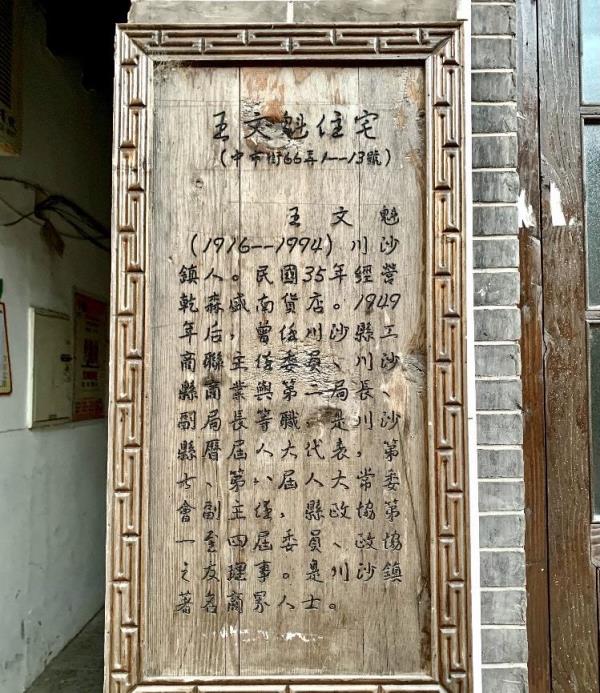 王文魁住宅
(中市街66弄1--13號)
王文魁
(1916--1994)川沙
鎮人。民國35年經營
乾森盛南貨店。1949
年后,曾任川沙縣工
商聯主任委員、川沙
縣商業與第二局長、
副局長等職。是川沙
縣曆屆人大代表,第
七、第八屆人大常委
會副主任,縣政協第
一至四屆委員、政協
之友理事。是川沙鎮
著名商界人士。